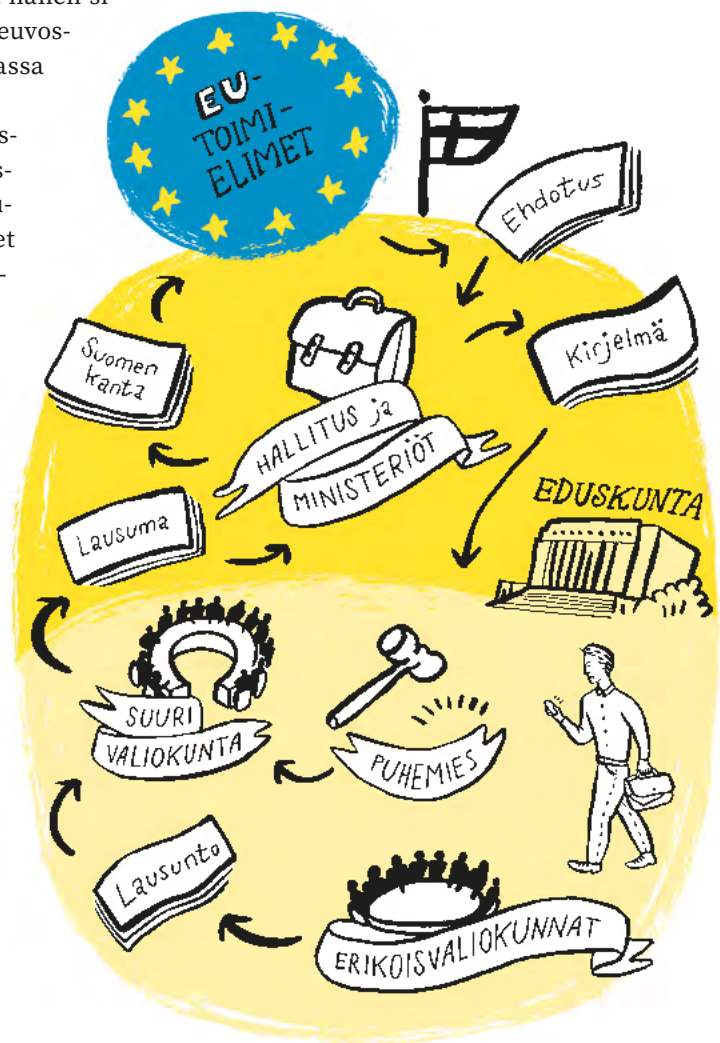 euvos-
assa
s-
s-
u-
et
-
EU-
TOIMI-
ELIMET
Ehdotus
Kirjelmä
Suomen
kanta
HALLITUS ja
MINISTERIÖT
EDUSKUNTA
Lausuma
SUURI
VALIOKUNTA
PUHEMIES
Lausunto
ERIKOISVALIOKUNNAT